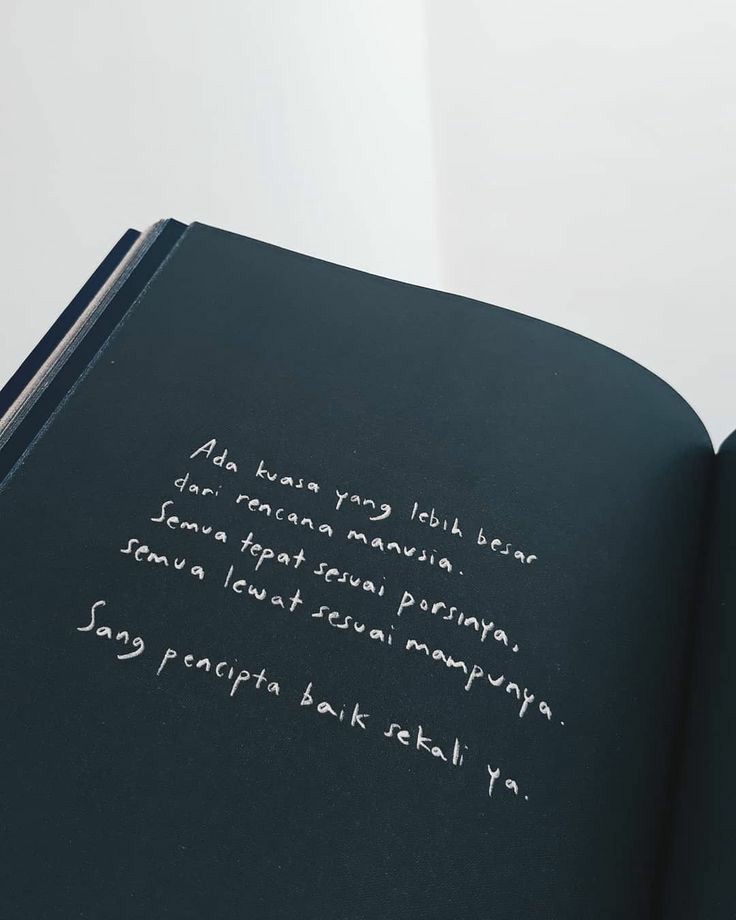 Ada kuasa yang lebih besar
dari rencana manusia.
Semua tepat sesuai porsinya,
semua lewat sesuai mampunya.
Sang pencipta baik sekali ya.